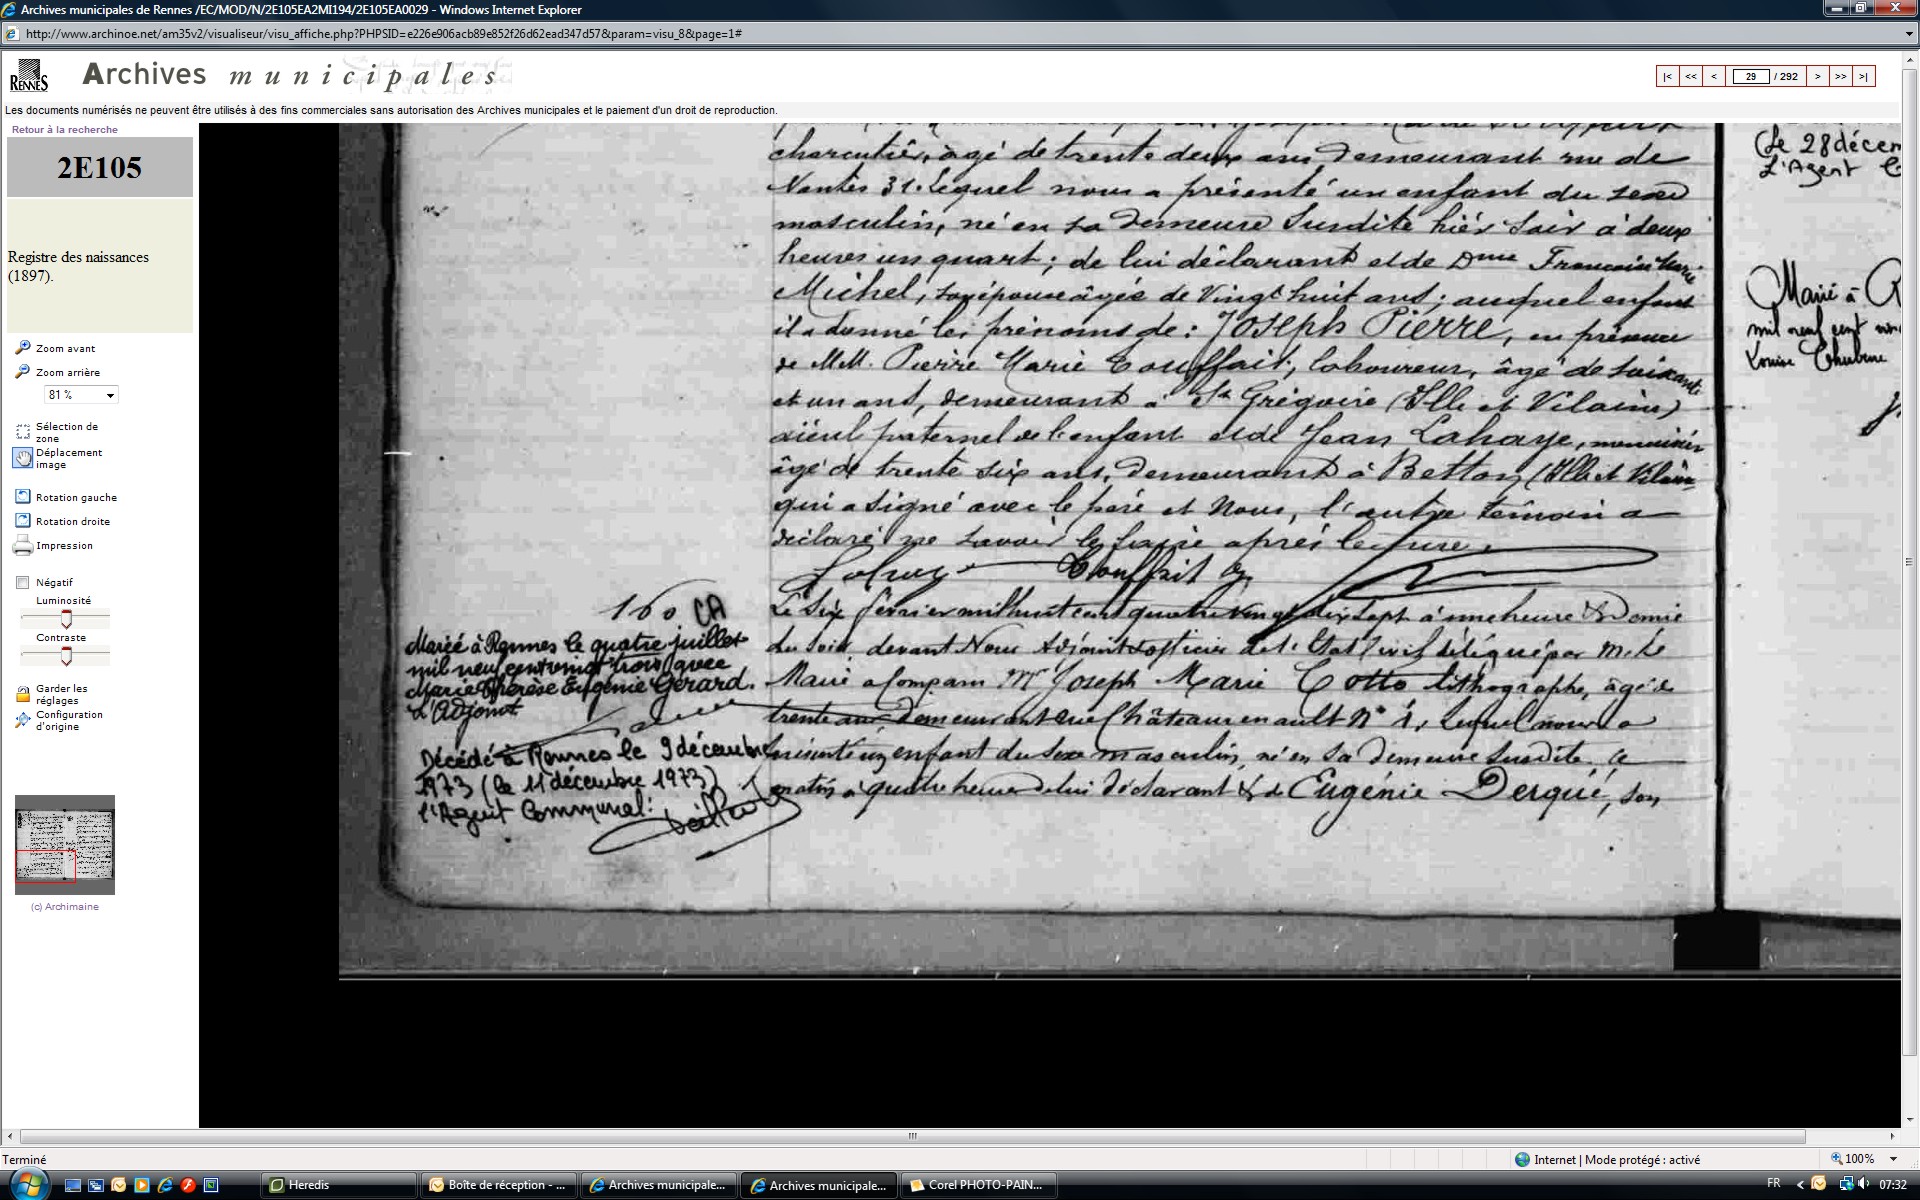 Archives municipales de Rennes /EC/MOD/N/2E105EA2MI194/2E105EA0029 - Windows Internet Explorer
http://www.archinoe.net/am35v2/visualiseur/visu_affiche.php?PHPSID=e226e906acb89e852f26d62ead347d57&param=visu_8&page=1#
RENNES Archives municipales
|< << < 29 / 292 > >> >|
Les documents numérisés ne peuvent être utilisés à des fins commerciales sans autorisation des Archives municipales et le paiement d'un droit de reproduction.
Retour à la recherche
2E105
Registre des naissances
(1897).
Zoom avant
Zoom arrière
81 %
Sélection de
zone
Déplacement
image
Rotation gauche
Rotation droite
Impression
Négatif
Luminosité
Contraste
Garder les
réglages
Configuration
d'origine
(c) Archimaine
charcutier, âgé de trente deux ans demeurant rue de
Nantes 31. Lequel nous a présenté un enfant du sexe
masculin, né en sa demeure susdite hier soir à deux
heures un quart; de lui déclarant et de Dme Françoise Marie
Michel, son épouse âgée de vingt huit ans; auquel enfant
il a donné les prénoms de: Joseph Pierre, en présence
de MM. Pierre Marie Touffait, laboureur, âgé de soixante
et un ans, demeurant à St Grégoire (Ille et Vilaine)
aïeul paternel de l'enfant et de Jean Lahaye, menuisier
âgé de trente six ans, demeurant à Betton (Ille et Vilaine
qui a signé avec le père et Nous, l'autre témoin a
déclaré ne savoir le faire après lecture.
Lahaye Touffait
160 CA
Le six février mil huit cent quatre vingt dix sept à une heure & demie
du soir devant Nous Adjoint & officier de l'Etat Civil délégué par M. le
Maire a comparu Mr Joseph Marie Cotto lithographe, âgé de
trente ans demeurant rue Châteaurenault N° 1, Lequel nous a
présenté un enfant du sexe masculin, né en sa demeure susdite ce
matin à quatre heures de lui déclarant & de Eugénie Derqué, son
Marié à Rennes le quatre juillet
mil neuf cent vingt trois avec
Marie Thérèse Eugénie Gérard.
L'Adjoint
Décédé à Rennes le 9 décembre
1973 (Le 11 décembre 1973)
l'Agent Communal:
(Le 28 décem
L'Agent C
Marié à R
mil neuf cent
Louise
Terminé
Internet | Mode protégé : activé
100%
Heredis
Boîte de réception - ...
Archives municipale...
Archives municipale...
Corel PHOTO-PAIN...
FR
07:32